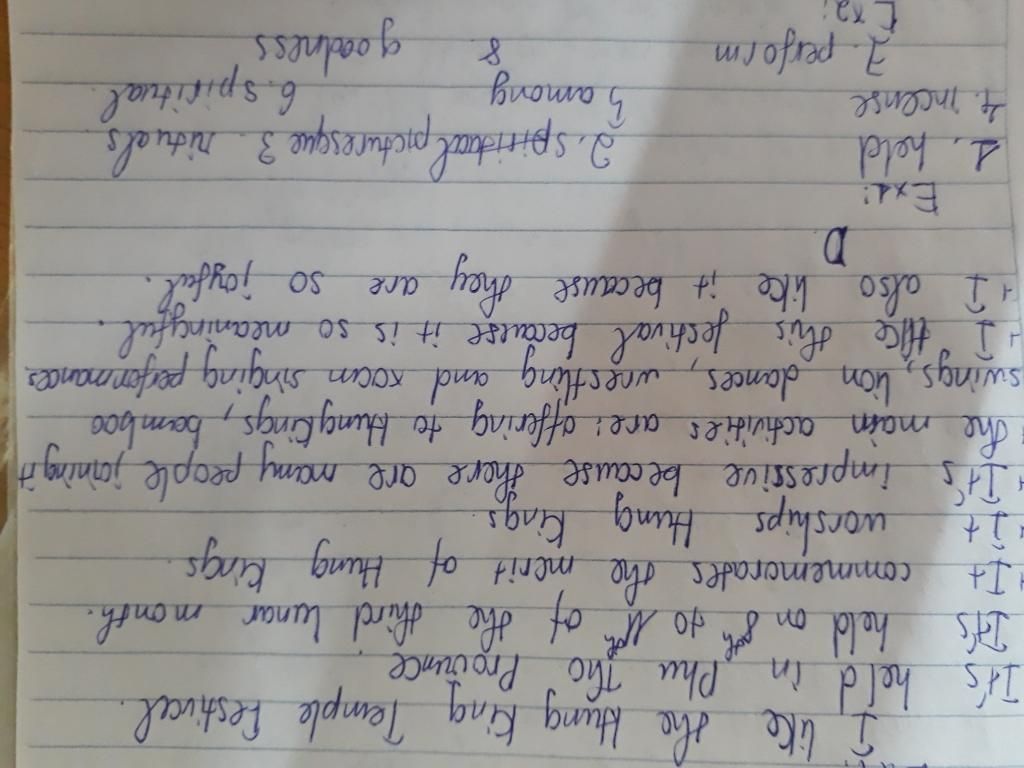 I like the Hung King Temple Festival.
It's held in Phu Tho Province
It's held on 8th to 11th of the third lunar month.
+ It commemorates the merit of Hung Kings.
+ It worships Hung Kings.
+ It's impressive because there are many people joining it
+ The main activities are: offering to Hung Kings, bamboo
swings, lion dances, wrestling and xoan singing performances
+ I like this festival because it is so meaningful.
+ I also like it because they are so joyful.
D
Ex1:
1. held 2. spiritual picturesque 3. rituals
4. incense 5 among 6. spiritual
7. perform 8 goodness
Ex2: